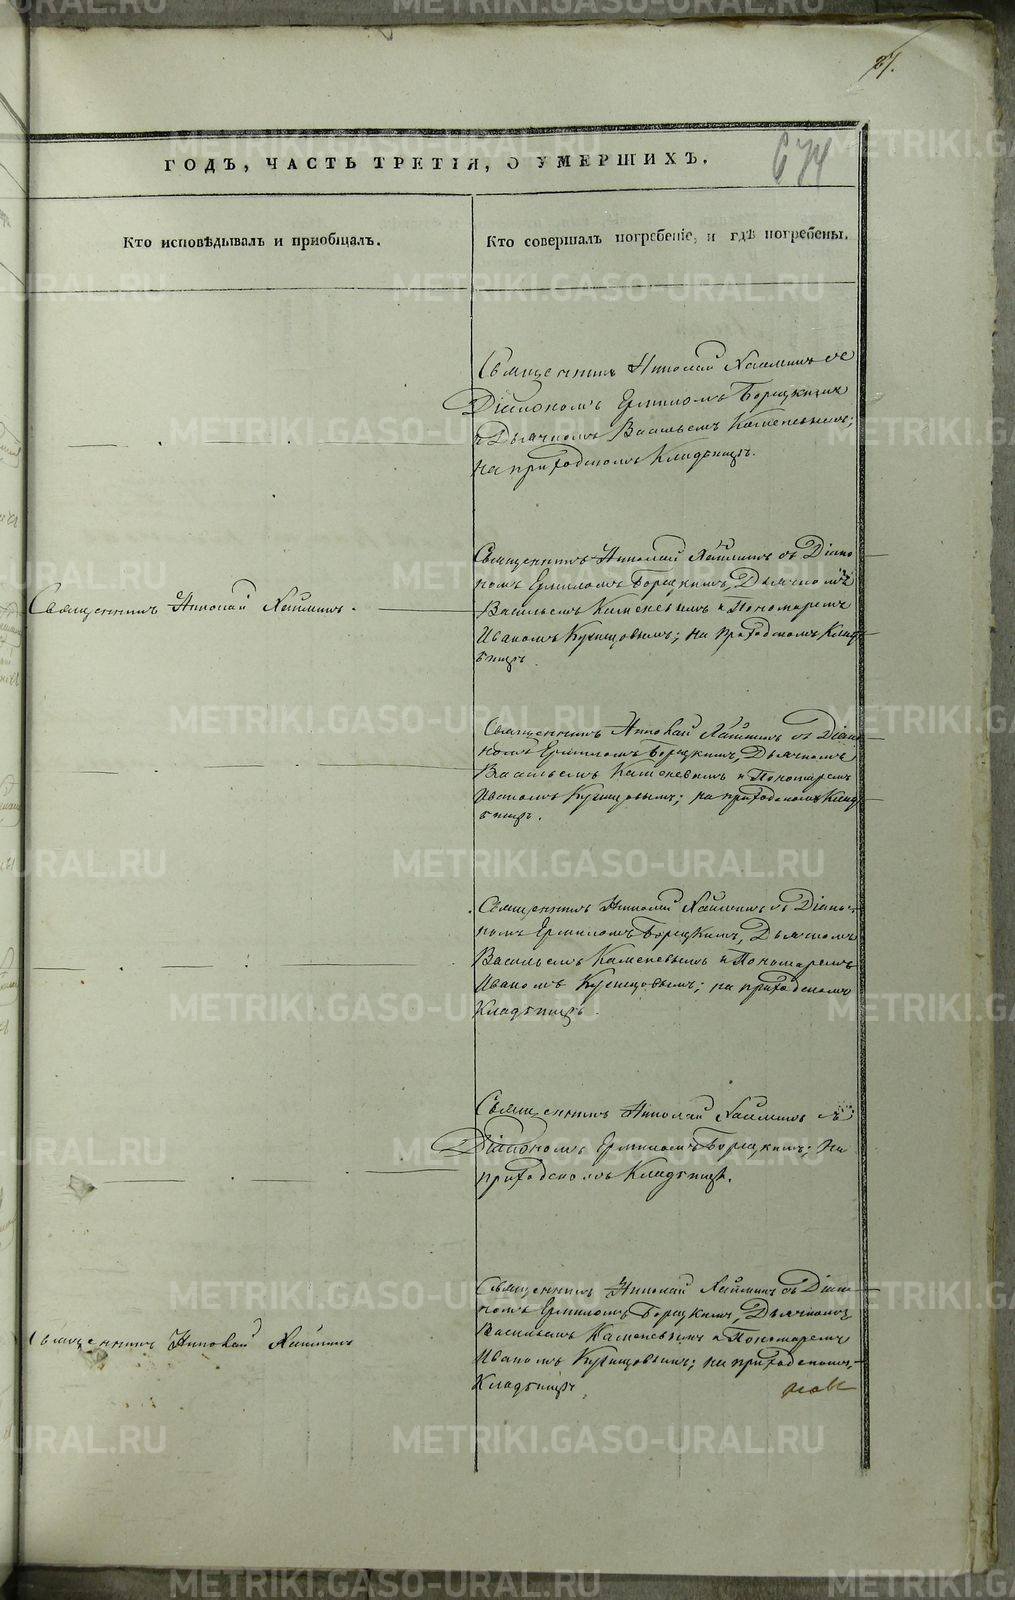 27.
674
ГОДЪ, ЧАСТЬ ТРЕТІЯ, О УМЕРШИХЪ.
Кто исповѣдывалъ и пріобщалъ.
Кто совершалъ погребеніе, и гдѣ погребены.
Священникъ Николай съ
Діакономъ Ермиломъ Борецкимъ
и Дьячкомъ Васильемъ Каменевымъ;
на приходскомъ Кладбищѣ.
Священникъ Николай съ Діако
номъ Ермиломъ Борецкимъ, Дьячкомъ
Священникъ Николай
Васильемъ Каменевымъ и Пономаремъ
Иваномъ Кузнецовымъ; на приходскомъ Клад
бищѣ.
Священникъ Николай съ Діако
номъ Ермиломъ Борецкимъ, Дьячкомъ
Васильемъ Каменевымъ и Пономаремъ
Иваномъ Кузнецовымъ; на приходскомъ Клад
бищѣ.
Священникъ Николай съ Діако
номъ Ермиломъ Борецкимъ, Дьячкомъ
Васильемъ Каменевымъ и Пономаремъ
Иваномъ Кузнецовымъ; на приходскомъ
Кладбищѣ.
Священникъ Николай съ
Діакономъ Ермиломъ Борецкимъ; на
приходскомъ Кладбищѣ.
Священникъ Николай съ Діако
номъ Ермиломъ Борецкимъ, Дьячкомъ
Священникъ Николай
Васильемъ Каменевымъ и Пономаремъ
Иваномъ Кузнецовымъ; на приходскомъ
Кладбищѣ.
METRIKI.GASO-URAL.RU